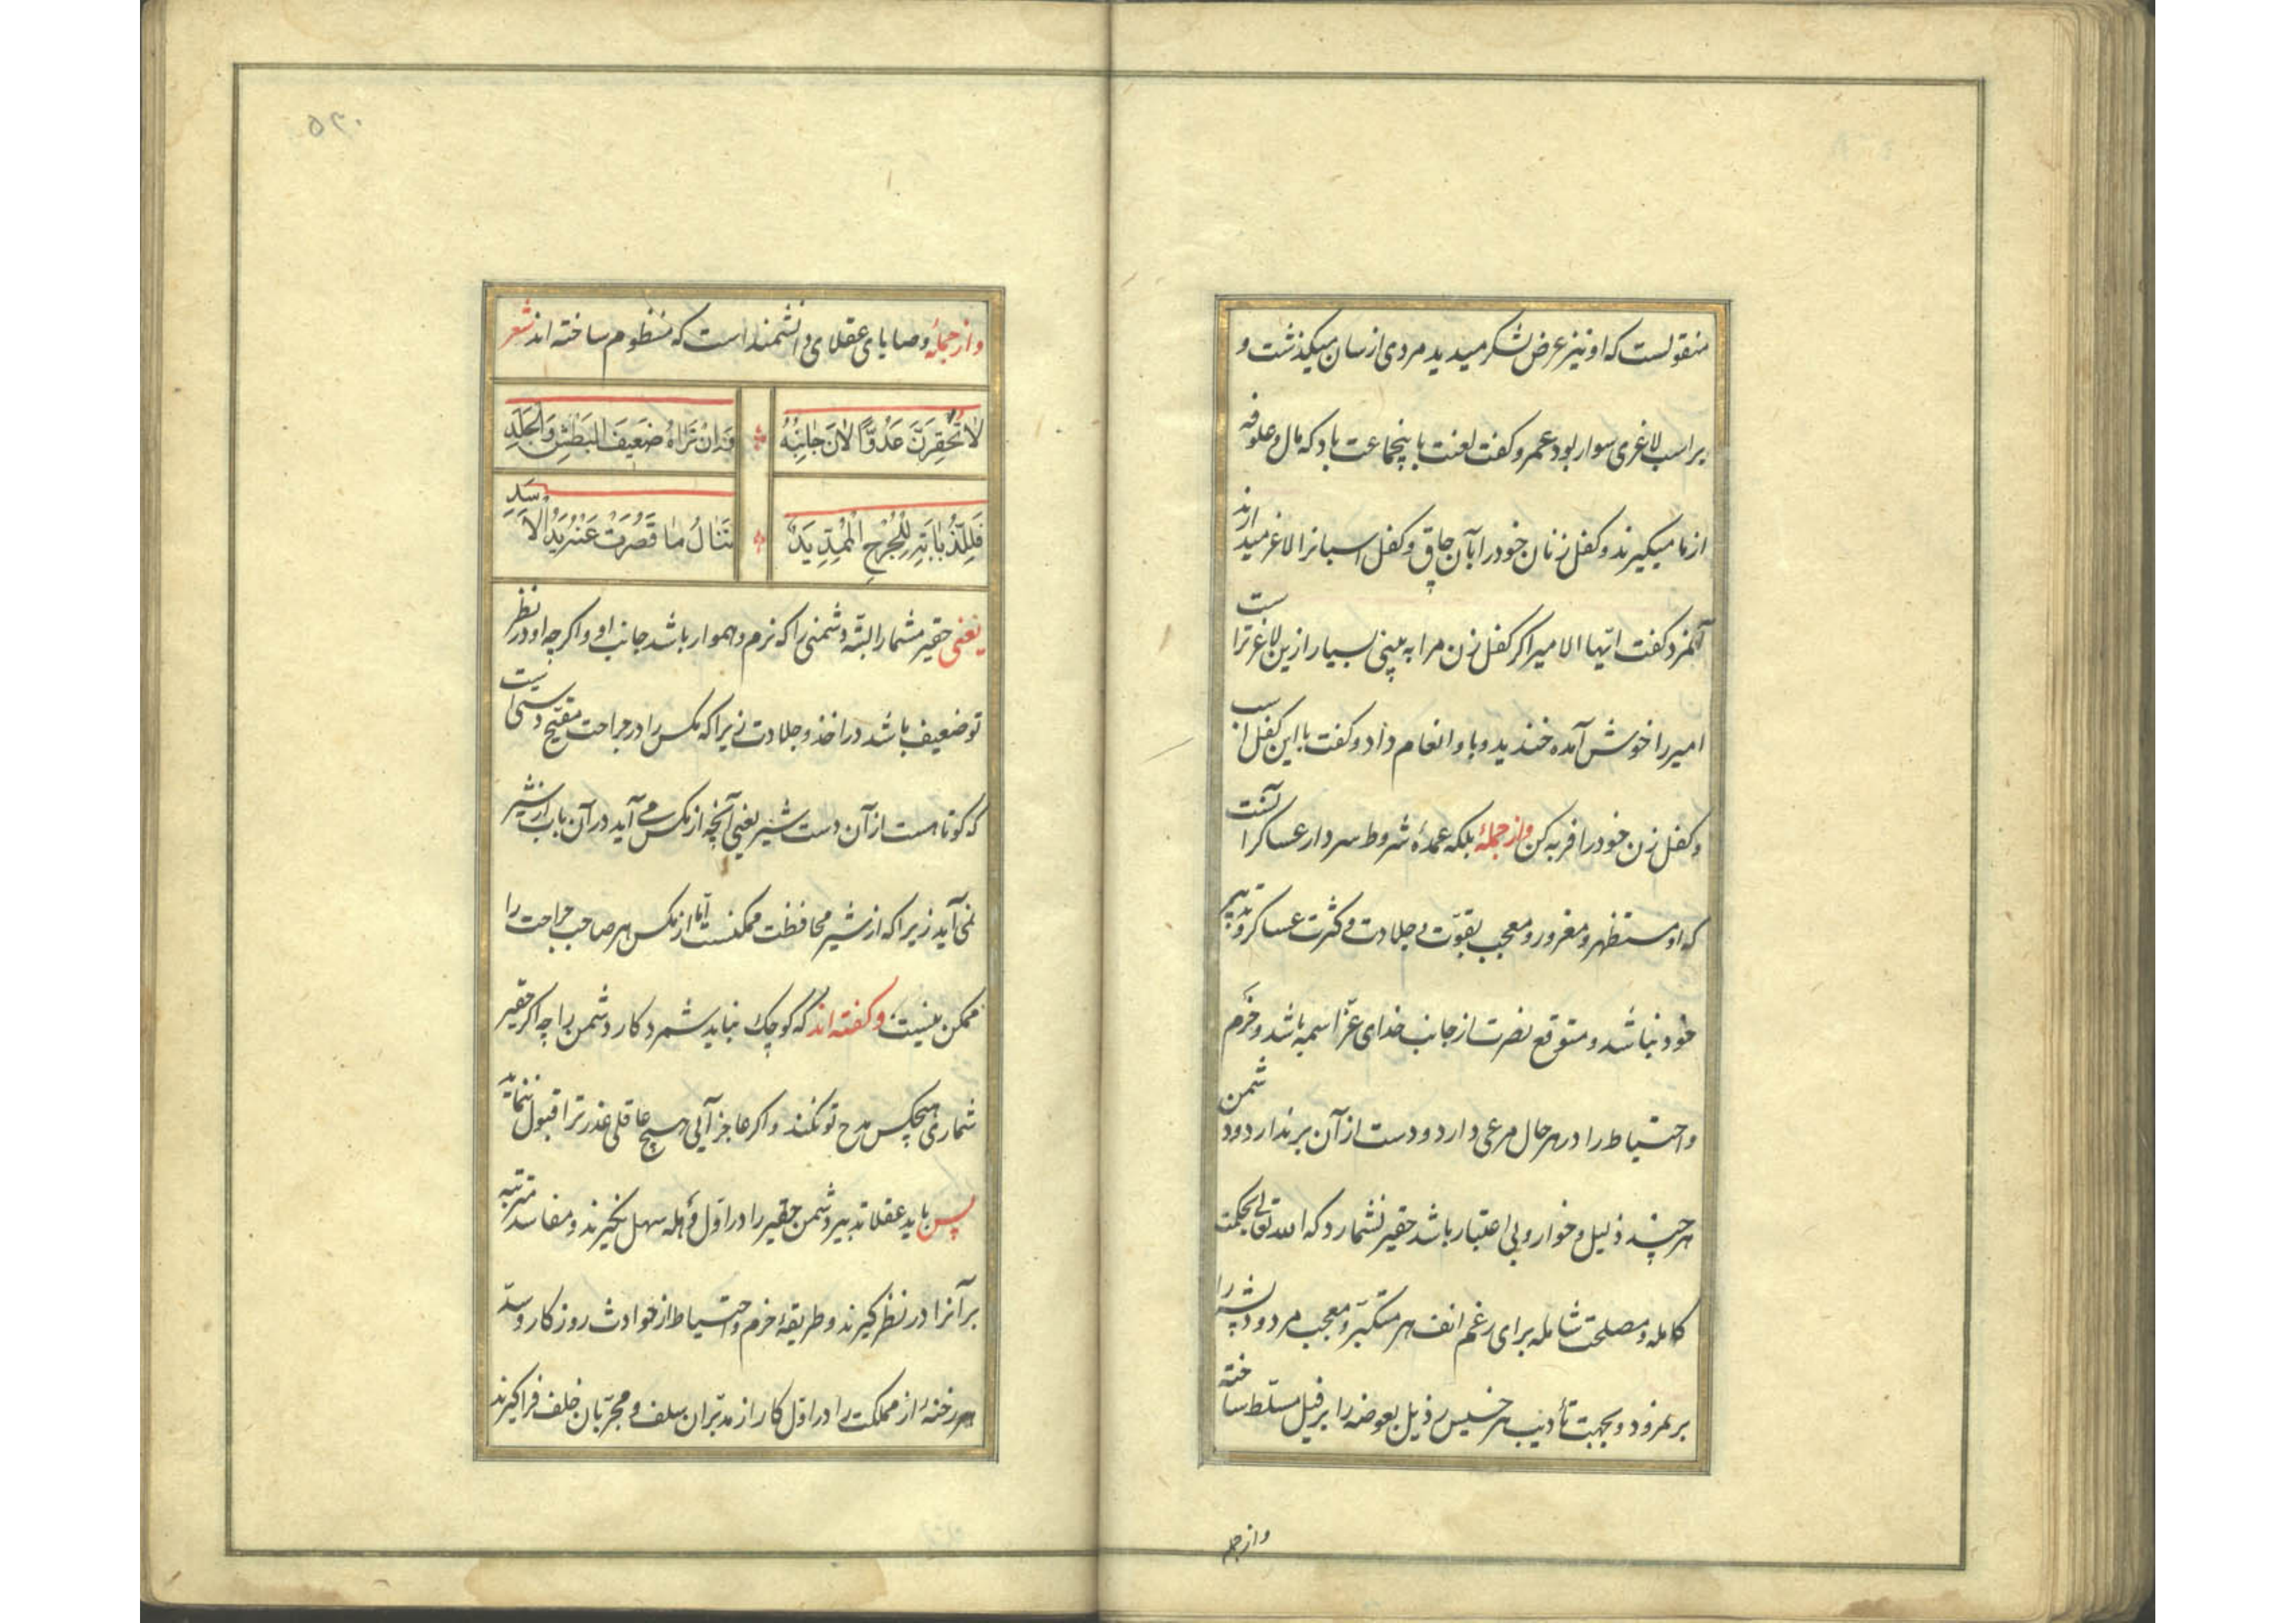 منقولست که او نیز عرض لشکر میدید مردی از سان میکذشت و
بر اسب لاغری سوار بود عمرو کفت لعنت باینجماعت باد که مال و علوفه
از ما میکیرند و کفل زنان خود را بآن چاق و کفل اسبانرا لاغر میدارند
آنمرد کفت ایّها الامیر اکر کفل زن مرا به بینی بسیار ازین لاغر تر است
امیر را خوش آمده خندید و باو انعام داد و کفت با این کفل اسب
و کفل زن خود را فربه کن و از جملۀ بلکه عمدۀ شروط سردار عساکر آنست
که او مستظهر و مغرور و معجب بقوّت و جلادت و کثرت عساکر و تدبیر
خود نباشد و متوقع نصرت از جانب خدای عزّ اسمه باشد و حزم
و احتیاط را در هر حال مرعی دارد و دست از آن برندارد و دشمن
هر چند ذلیل و خوار و بی اعتبار باشد حقیر نشمارد که الله تعالی بحکمت
کامله و مصلحت شامله برای رغم انف هر متکبّر و معجب مردود پشه را
بر نمرود و بجهت تأدیب هر خسیس رذیل بعوضه را بر فیل مسلّط ساخته
و از جمله
۵۳۰
و از جملۀ وصایای عقلای دانشمند است که منظوم ساخته اند شعر
لا تَحْقِرَنَّ عَدُوّاً لانَ جانِبُهُ وَ اِنْ تَراهُ ضَعیفَ البَطْشِ وَ الجَلَدِ
فَلِلذُّبابَةِ لِلْجُرْحِ الْمُمِدِّ یَدٌ تَنالُ ما قَصُرَتْ عَنْهُ یَدُ الاَسَدِ
یعنی حقیر مشمار البتّه دشمنی را که نرم و هموار باشد جانب او و اکر چه او در نظر
تو ضعیف باشد در اخذ و جلادت زیرا که مکس را در جراحت مقیّح دستی است
که کوتاهست از آن دست شیر یعنی آنچه از مکس می آید در آن باب از شیر
نمی آید زیرا که از شیر محافظت ممکنست امّا از مکس هر صاحب جراحت را
ممکن نیست و کفته اند که کوچک نباید شمرد کار دشمن را چه اکر حقیر
شماری هیچکس مدح تو نکند و اکر عاجز آیی هیچ عاقلی عذر ترا قبول ننماید
پس باید عقلا تدبیر دشمن حقیر را در اوّل وهله سهل نکیرند و مفاسد مترتبه
بر آنرا در نظر کیرند و طریقۀ حزم و احتیاط از حوادث روزکار و سدّ
هر رخنۀ از مملکت را در اوّل کار از مدبّران سلف و مجرّبان خلف فرا کیرند